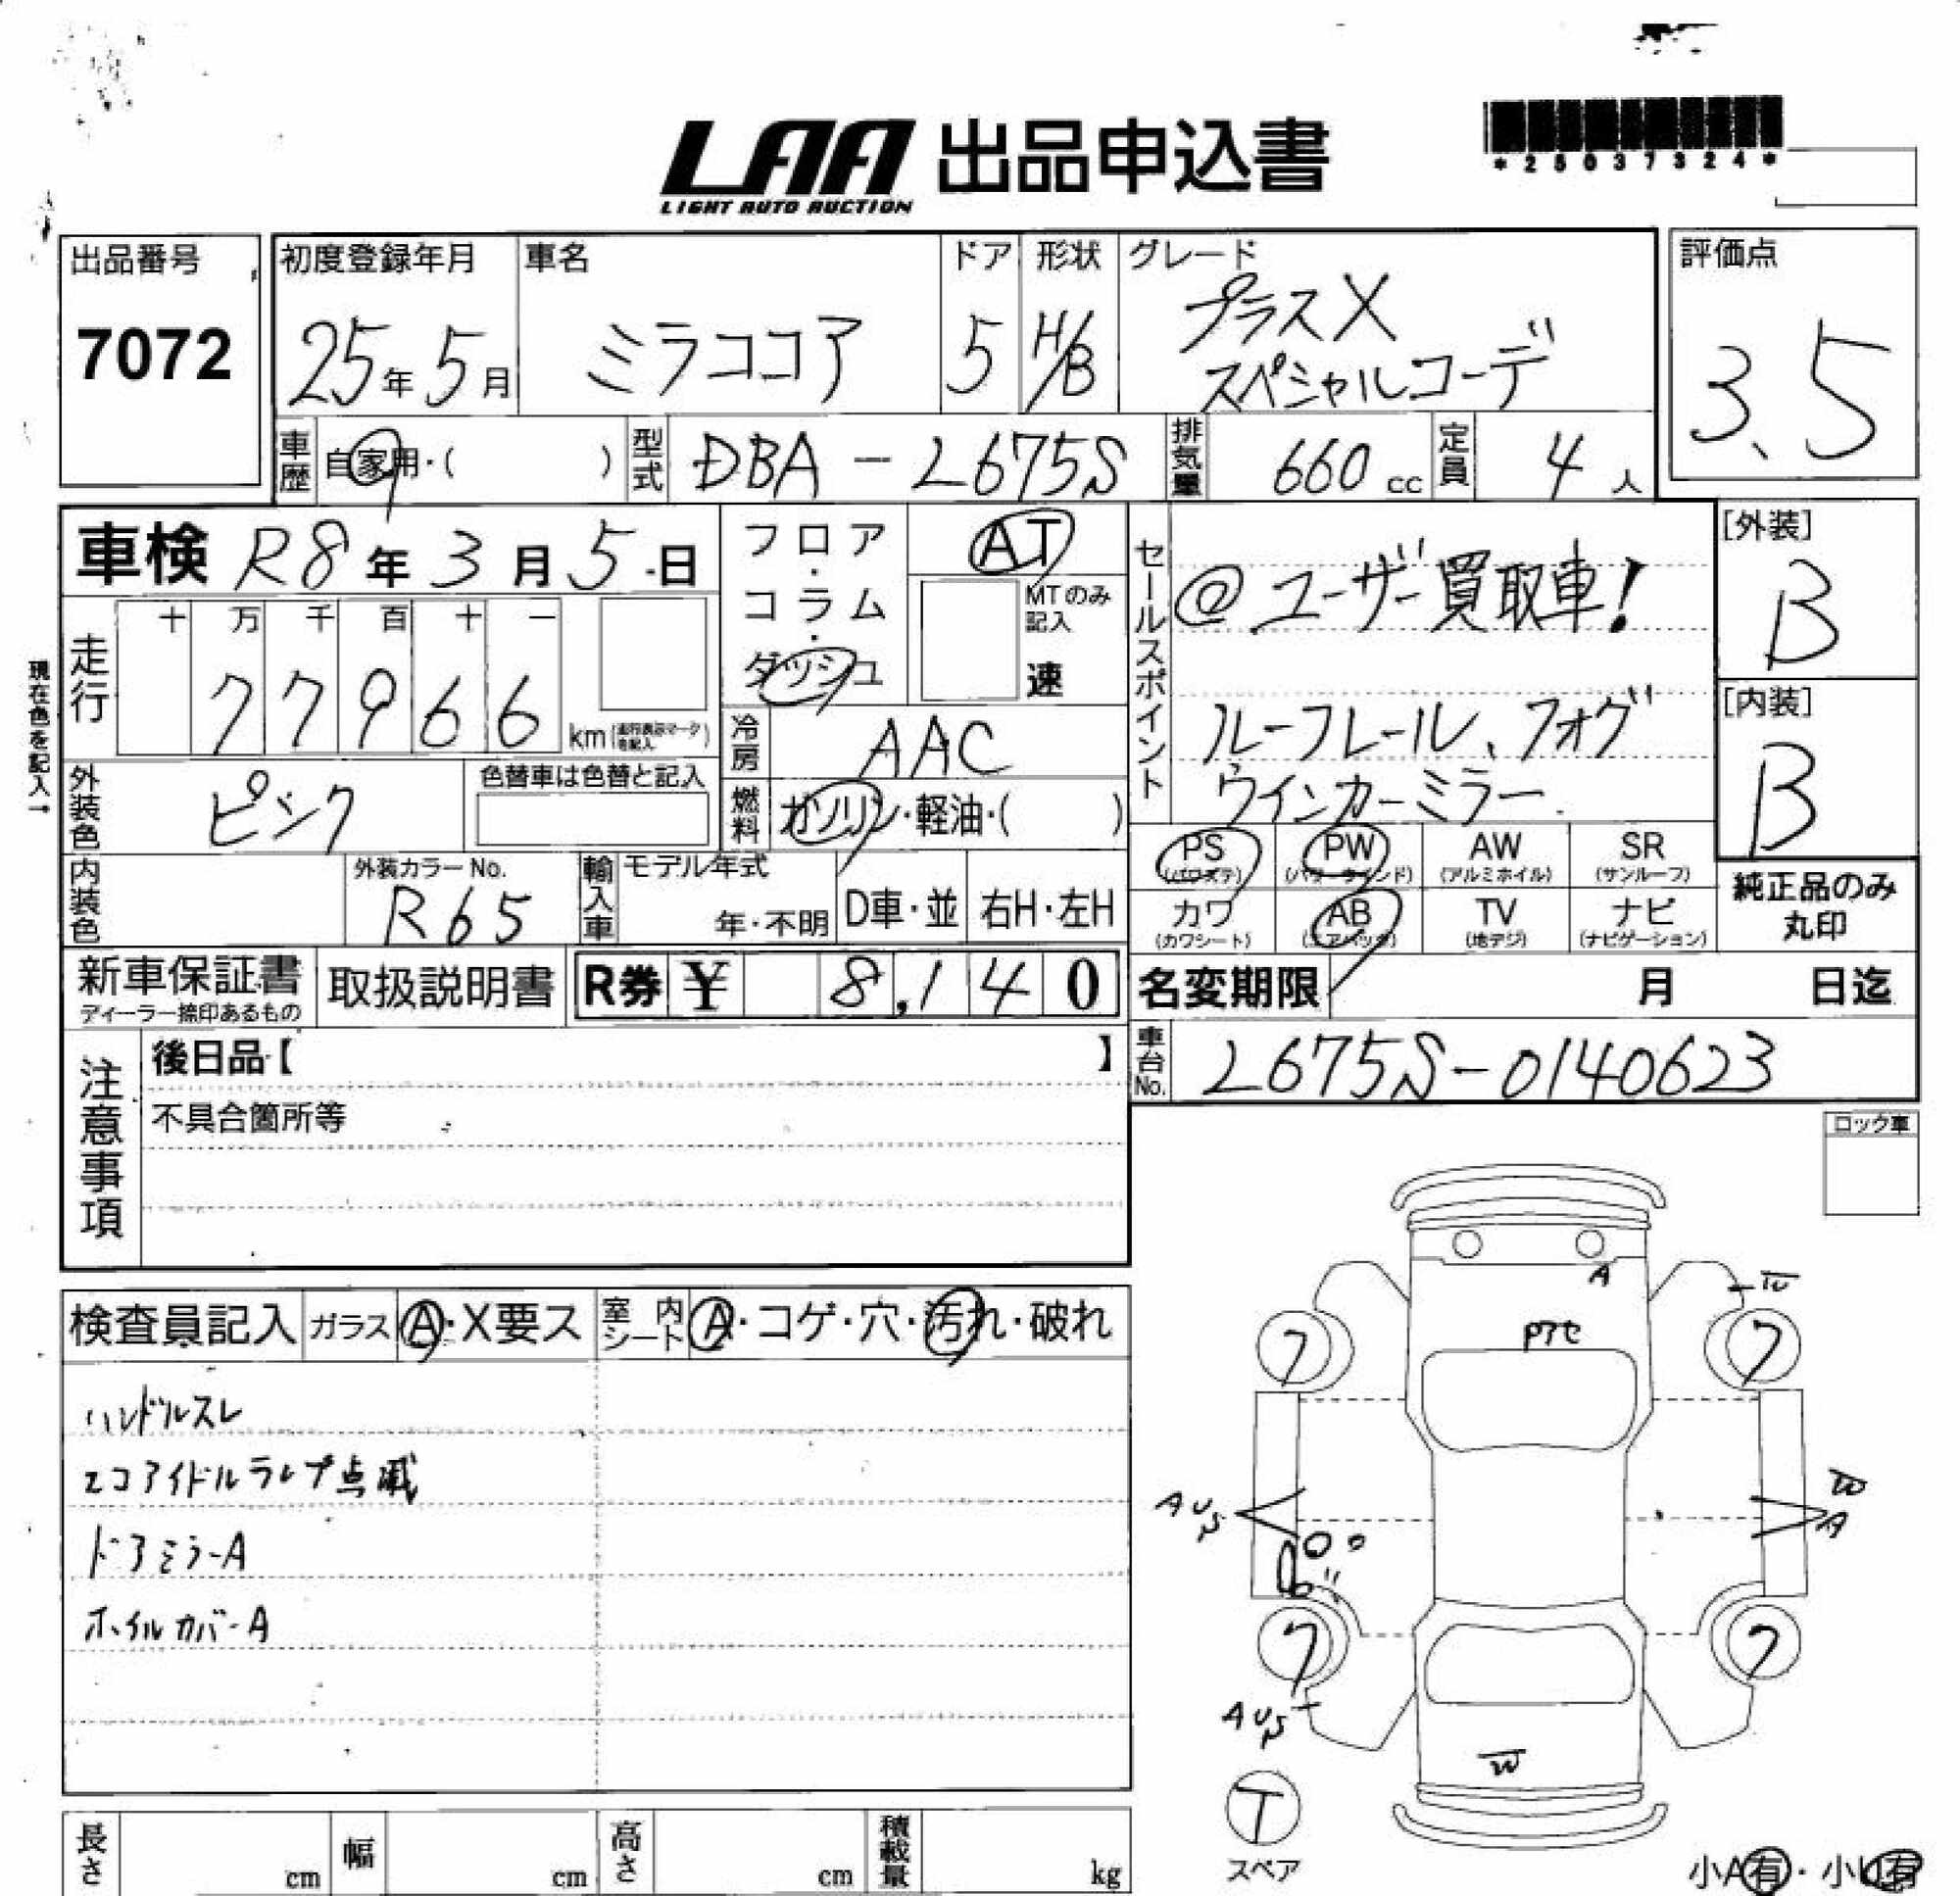 LAA 出品申込書
LIGHT AUTO AUCTION
*25037324*
出品番号
7072
初度登録年月
25年5月
車名
ミラココア
ドア
5
形状
H/B
グレード
プラスX
スペシャルコーデ
評価点
3.5
車歴
自家用・( )
型式
DBA-L675S
排気量
660cc
定員
4人
車検 R8年3月5日
走行
十 万 千 百 十 一
77966
km
現在色を記入→
フロア・コラム・ダッシュ
AT
MTのみ記入
速
冷房
AAC
燃料
ガソリン・軽油・( )
セールスポイント
@ユーザー買取車!
ルーフレール、フォグ
ウインカーミラー
[外装]
B
[内装]
B
外装色
ピンク
色替車は色替と記入
内装色
外装カラーNo.
R65
輸入車
モデル年式
年・不明
D車・並
右H・左H
PS
(パワステ)
PW
(パワーウインド)
AW
(アルミホイル)
SR
(サンルーフ)
カワ
(カワシート)
AB
(エアバック)
TV
(地デジ)
ナビ
(ナビゲーション)
純正品のみ
丸印
新車保証書
ディーラー捺印あるもの
取扱説明書
R券 ¥ 8,140
名変期限 月 日迄
車台No.
L675S-0140623
注意事項
後日品【 】
不具合箇所等
ロック車
検査員記入
ガラス
A・X要ス
室内シート
A・コゲ・穴・汚れ・破れ
ハンドルスレ
エコアイドルランプ点滅
ドアミラーA
ホイルカバーA
A
W
Pアセ
7
7
W
A
7
7
W
T
スペア
長さ cm
幅 cm
高さ cm
積載量 kg
小A有・小U有